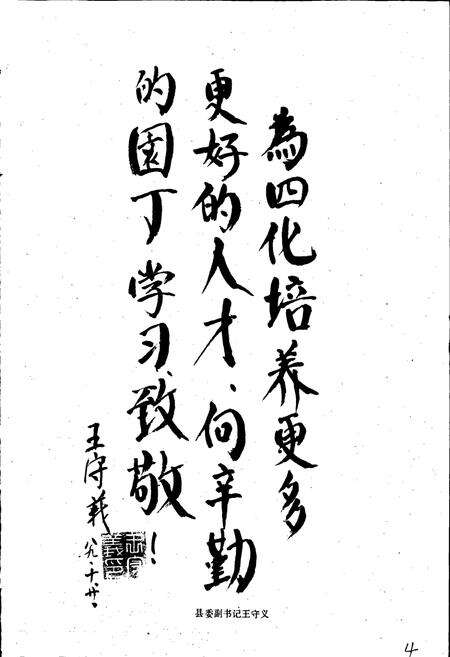 為四化培养更多
更好的人才、向辛勤
的園丁学习、致敬！
王守義
八九.十.廿.
王守
義印
县委副书记王守义
4